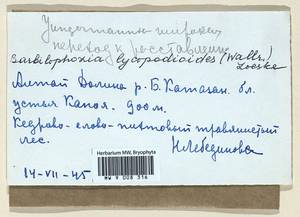 Jungermannia
переход к
Barbilophozia lycopodioides (Wallr.)
Loeske
Алтай Долина р. Б. Катаган. бл.
устья Капоя. 900 м.
Кедрово-елово-пихтовый травянистый
лес.
Н. Лебединова
Herbarium MW, Bryophyta
MW 9 008 316
14-VII-45